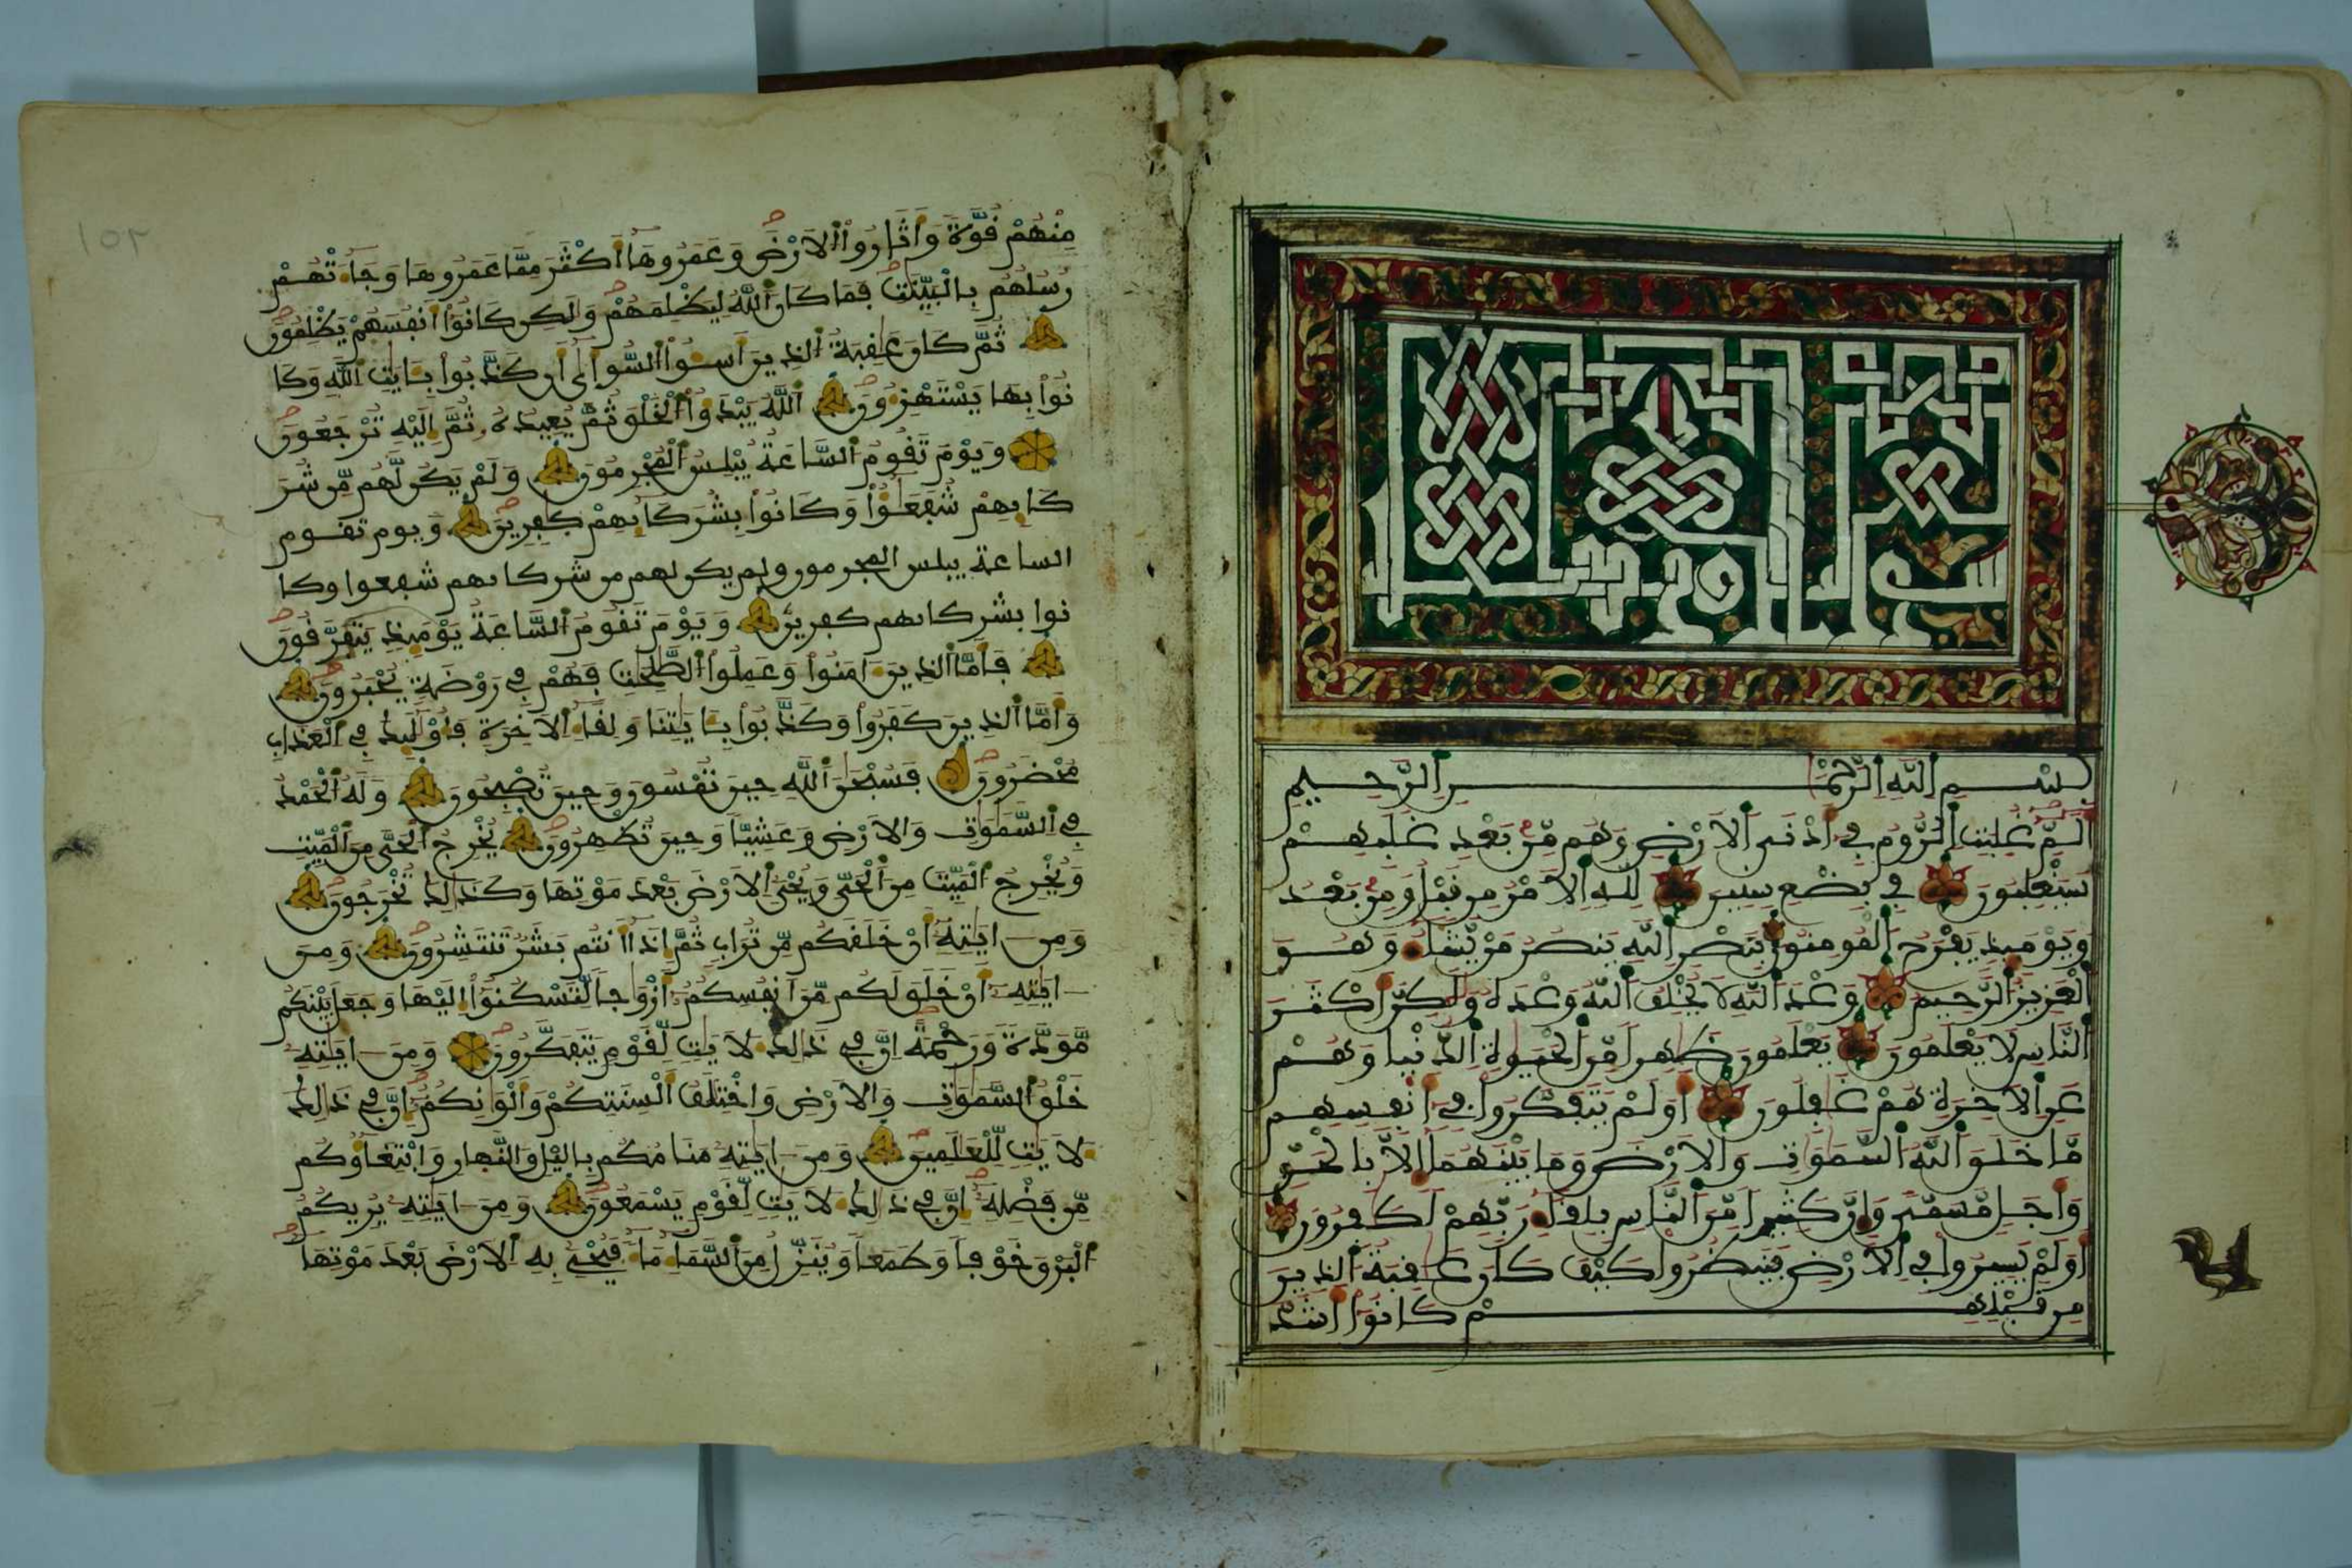 سورة الروم
بِسْمِ اِللَّهِ اِلرَّحْمَٰنِ اِلرَّحِيمِ
أَلَٓمِّٓ غُلِبَتِ اِلرُّومُ فِے أَدْنَي اَلَارْضِ وَهُم مِّنۢ بَعْدِ غَلَبِهِمْ
سَيَغْلِبُونَ فِے بِضْعِ سِنِينَ لِلهِ اِلَامْرُ مِن قَبْلُ وَمِنۢ بَعْدُ
وَيَوْمَئِذٖ يَفْرَحُ اَلْمُومِنُونَ بِنَصْرِ اِللَّهِ يَنصُرُ مَنْ يَّشَآءُ وَهُوَ
اَلْعَزِيزُ اَلرَّحِيمُ وَعْدَ اَللَّهِ لَا يُخْلِفُ اَللَّهُ وَعْدَهُۥ وَلَٰكِنَّ أَكْثَرَ
اَلنَّاسِ لَا يَعْلَمُونَ يَعْلَمُونَ ظَٰهِراٗ مِّنَ اَلْحَيَوٰةِ اِلدُّنْيَا وَهُمْ
عَنِ اِلَاخِرَةِ هُمْ غَٰفِلُونَ أَوَلَمْ يَتَفَكَّرُواْ فِے أَنفُسِهِم
مَّا خَلَقَ اَللَّهُ اُلسَّمَٰوَٰتِ وَالَارْضَ وَمَا بَيْنَهُمَآ إِلَّا بِالْحَقِّ
وَأَجَلٖ مُّسَمّيٗ وَإِنَّ كَثِيراٗ مِّنَ اَلنَّاسِ بِلِقَآءِ رَبِّهِمْ لَكَٰفِرُونَ
أَوَلَمْ يَسِيرُواْ فِے اِلَارْضِ فَيَنظُرُواْ كَيْفَ كَانَ عَٰقِبَةُ اُلذِينَ
مِن قَبْلِهِمْ كَانُوٓاْ أَشَدَّ
مِنْهُمْ قُوَّةٗ وَأَثَارُواْ اُلَارْضَ وَعَمَرُوهَآ أَكْثَرَ مِمَّا عَمَرُوهَا وَجَآءَتْهُمْ
رُسُلُهُم بِالْبَيِّنَٰتِ فَمَا كَانَ اَللَّهُ لِيَظْلِمَهُمْ وَلَٰكِن كَانُوٓاْ أَنفُسَهُمْ يَظْلِمُونَ
ثُمَّ كَانَ عَٰقِبَةُ اُلذِينَ أَسَٰٓـُٔواْ اُلسُّوٓأ۪ىٰٓ أَن كَذَّبُواْ بِـَٔايَٰتِ اِللَّهِ وَكَا
نُواْ بِهَا يَسْتَهْزِءُونَ اَللَّهُ يَبْدَؤُاْ اُلْخَلْقَ ثُمَّ يُعِيدُهُۥ ثُمَّ إِلَيْهِ تُرْجَعُونَ
وَيَوْمَ تَقُومُ اُلسَّاعَةُ يُبْلِسُ اُلْمُجْرِمُونَ وَلَمْ يَكُن لَّهُم مِّن شُرَ
كَآئِهِمْ شُفَعَٰٓؤُاْ وَكَانُواْ بِشُرَكَآئِهِمْ كَٰفِرِينَ وَيوم تقوم
الساعة يبلس المجرمون ولم يكن لهم من شركائهم شفعوا وكا
نوا بشركائهم كفرين وَيَوْمَ تَقُومُ اُلسَّاعَةُ يَوْمَئِذٖ يَتَفَرَّقُونَ
فَأَمَّا اَلذِينَ ءَامَنُواْ وَعَمِلُواْ اُلصَّٰلِحَٰتِ فَهُمْ فِے رَوْضَةٖ يُحْبَرُونَ
وَأَمَّا اَلذِينَ كَفَرُواْ وَكَذَّبُواْ بِـَٔايَٰتِنَا وَلِقَآءِ اِلَاخِرَةِ فَأُوْلَٰٓئِكَ فِے اِلْعَذَابِ
مُحْضَرُونَ فَسُبْحَٰنَ اَللَّهِ حِينَ تُمْسُونَ وَحِينَ تُصْبِحُونَ وَلَهُ اُلْحَمْدُ
فِے اِلسَّمَٰوَٰتِ وَالَارْضِ وَعَشِيّاٗ وَحِينَ تُظْهِرُونَ يُخْرِجُ اُلْحَيَّ مِنَ اَلْمَيِّتِ
وَيُخْرِجُ اُلْمَيِّتَ مِنَ اَلْحَيِّ وَيُحْيِ اِلَارْضَ بَعْدَ مَوْتِهَا وَكَذَٰلِكَ تُخْرَجُونَ
وَمِنَ ءَايَٰتِهِۦٓ أَنْ خَلَقَكُم مِّن تُرَابٖ ثُمَّ إِذَآ أَنتُم بَشَرٞ تَنتَشِرُونَ وَمِنَ
ءَايَٰتِهِۦٓ أَنْ خَلَقَ لَكُم مِّنَ اَنفُسِكُمُۥٓ أَزْوَٰجاٗ لِّتَسْكُنُوٓاْ إِلَيْهَا وَجَعَلَ بَيْنَكُم
مَّوَدَّةٗ وَرَحْمَةً اِنَّ فِے ذَٰلِكَ لَأٓيَٰتٖ لِّقَوْمٖ يَتَفَكَّرُونَ وَمِنَ ءَايَٰتِهِۦ
خَلْقُ اُلسَّمَٰوَٰتِ وَالَارْضِ وَاخْتِلَٰفُ أَلْسِنَتِكُمْ وَأَلْوَٰنِكُمُۥٓ إِنَّ فِے ذَٰلِكَ
لَأٓيَٰتٖ لِّلْعَٰلَمِينَ وَمِنَ ءَايَٰتِهِۦ مَنَامُكُم بِاليْلِ وَالنَّهَارِ وَابْتِغَآؤُكُم
مِّن فَضْلِهِۦٓ إِنَّ فِے ذَٰلِكَ لَأٓيَٰتٖ لِّقَوْمٖ يَسْمَعُونَ وَمِنَ ءَايَٰتِهِۦ يُرِيكُمُ
اُلْبَرْقَ خَوْفاٗ وَطَمَعاٗ وَيُنَزِّلُ مِنَ اَلسَّمَآءِ مَآءٗ فَيُحْيِۦ بِهِ اِلَارْضَ بَعْدَ مَوْتِهَآ